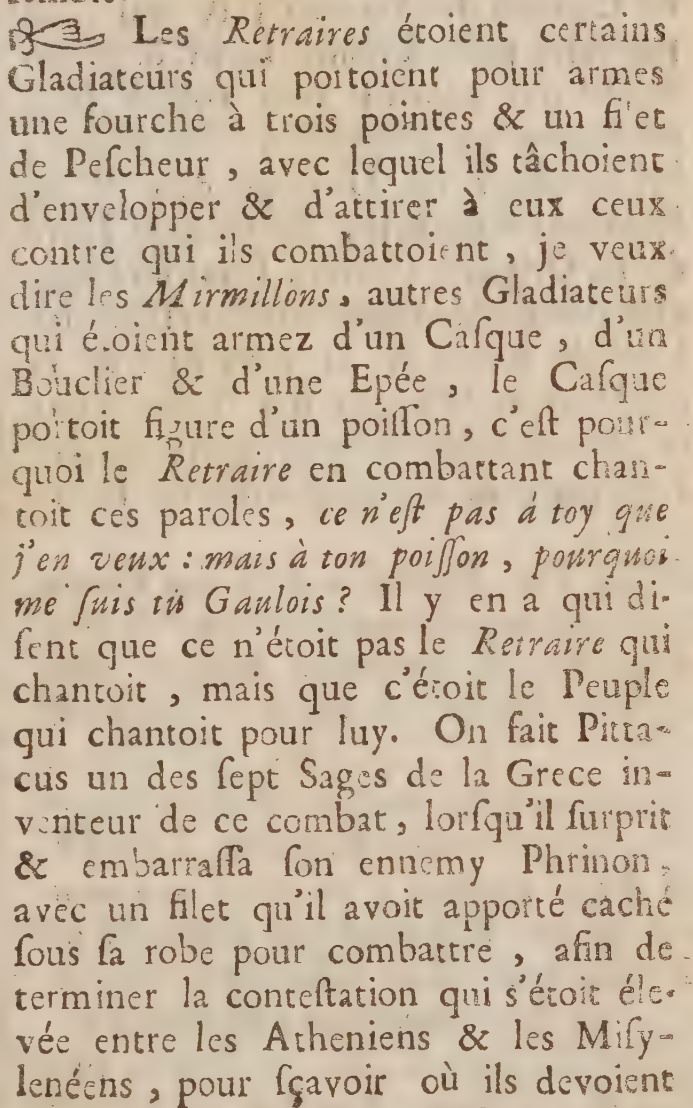 ☞ Les Retraires étoient certains
Gladiateurs qui portoient pour armes
une fourche à trois pointes & un filet
de Peſcheur , avec lequel ils tâchoient
d'envelopper & d'attirer à eux ceux
contre qui ils combattoient , je veux
dire les Mirmillons , autres Gladiateurs
qui étoient armez d'un Caſque , d'un
Bouclier & d'une Epée , le Caſque
portoit figure d'un poiſſon , c'eſt pour-
quoi le Retraire en combattant chan-
toit ces paroles , ce n'eſt pas à toy que
j'en veux : mais à ton poiſſon , pourquoi
me fuis tu Gaulois ? Il y en a qui di-
ſent que ce n'étoit pas le Retraire qui
chantoit , mais que c'étoit le Peuple
qui chantoit pour luy. On fait Pitta-
cus un des ſept Sages de la Grece in-
venteur de ce combat , lorſqu'il ſurprit
& embarraſſa ſon ennemy Phrinon ,
avec un filet qu'il avoit apporté caché
ſous ſa robe pour combattre , afin de
terminer la conteſtation qui s'étoit éle-
vée entre les Atheniens & les Miſy-
lenéens , pour ſçavoir où ils devoient